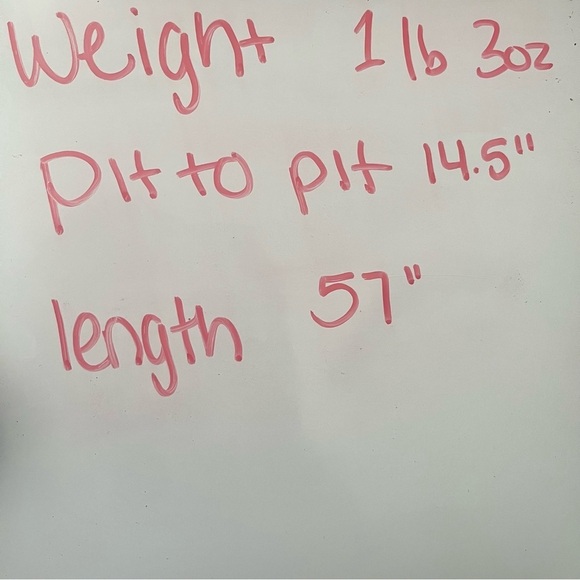 Weight 1 lb 3oz
pit to pit 14.5"
length 57"